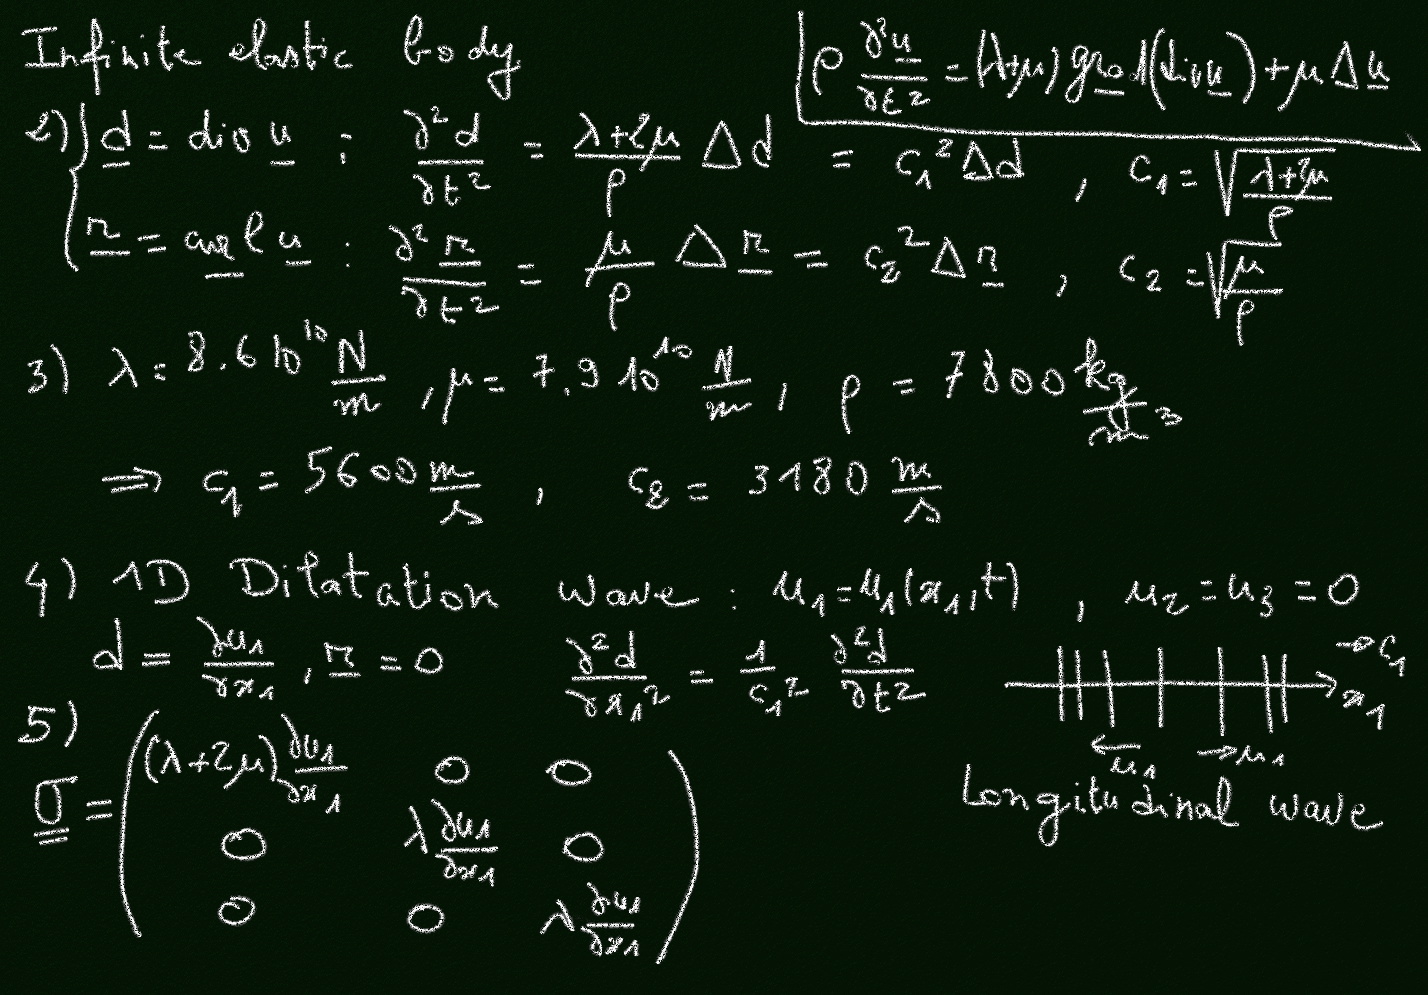 Infinite elastic body
ρ ∂²u/∂t² = (λ+μ) grad(div u) + μ Δ u
2) { d = div u : ∂²d/∂t² = (λ+2μ)/ρ Δd = c₁² Δd , c₁ = √((λ+2μ)/ρ)
r = curl u : ∂²r/∂t² = μ/ρ Δ r = c₂² Δ r , c₂ = √(μ/ρ)
3) λ = 8.6 10¹⁰ N/m , μ = 7.9 10¹⁰ N/m , ρ = 7800 kg/m³
⇒ c₁ = 5600 m/s , c₂ = 3180 m/s
4) 1D Dilatation wave : u₁ = u₁(x₁,t) , u₂ = u₃ = 0
d = ∂u₁/∂x₁ , r = 0 ∂²d/∂x₁² = 1/c₁² ∂²d/∂t²
→ c₁
x₁
← u₁ → u₁
Longitudinal wave
5)
σ = ( (λ+2μ) ∂u₁/∂x₁ 0 0
0 λ ∂u₁/∂x₁ 0
0 0 λ ∂u₁/∂x₁ )